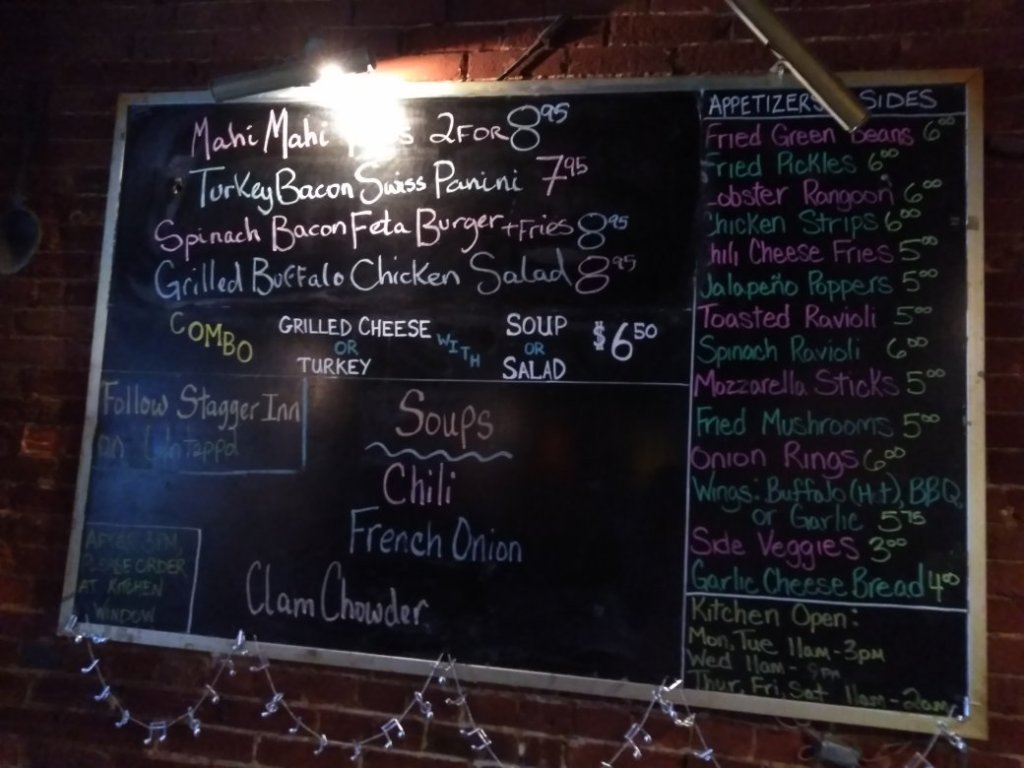 Mahi Mahi 2 FOR 8.95
Turkey Bacon Swiss Panini 7.95
Spinach Bacon Feta Burger + Fries 8.95
Grilled Buffalo Chicken Salad 8.95
COMBO
GRILLED CHEESE
OR
TURKEY
WITH
SOUP
OR
SALAD
$6.50
Follow Stagger Inn
on Untappd
AFTER
PLEASE ORDER
AT KITCHEN
WINDOW
Soups
Chili
French Onion
Clam Chowder
APPETIZERS SIDES
Fried Green Beans 6.00
Fried Pickles 6.00
Lobster Rangoon 6.00
Chicken Strips 6.00
Chili Cheese Fries 5.00
Jalapeño Poppers 5.00
Toasted Ravioli 5.00
Spinach Ravioli 6.00
Mozzarella Sticks 5.00
Fried Mushrooms 5.00
Onion Rings 6.00
Wings: Buffalo (Hot), BBQ
or Garlic 5.75
Side Veggies 3.00
Garlic Cheese Bread 4.00
Kitchen Open:
Mon, Tue 11am-3pm
Wed 11am-
Thur, Fri, Sat 11am-2am